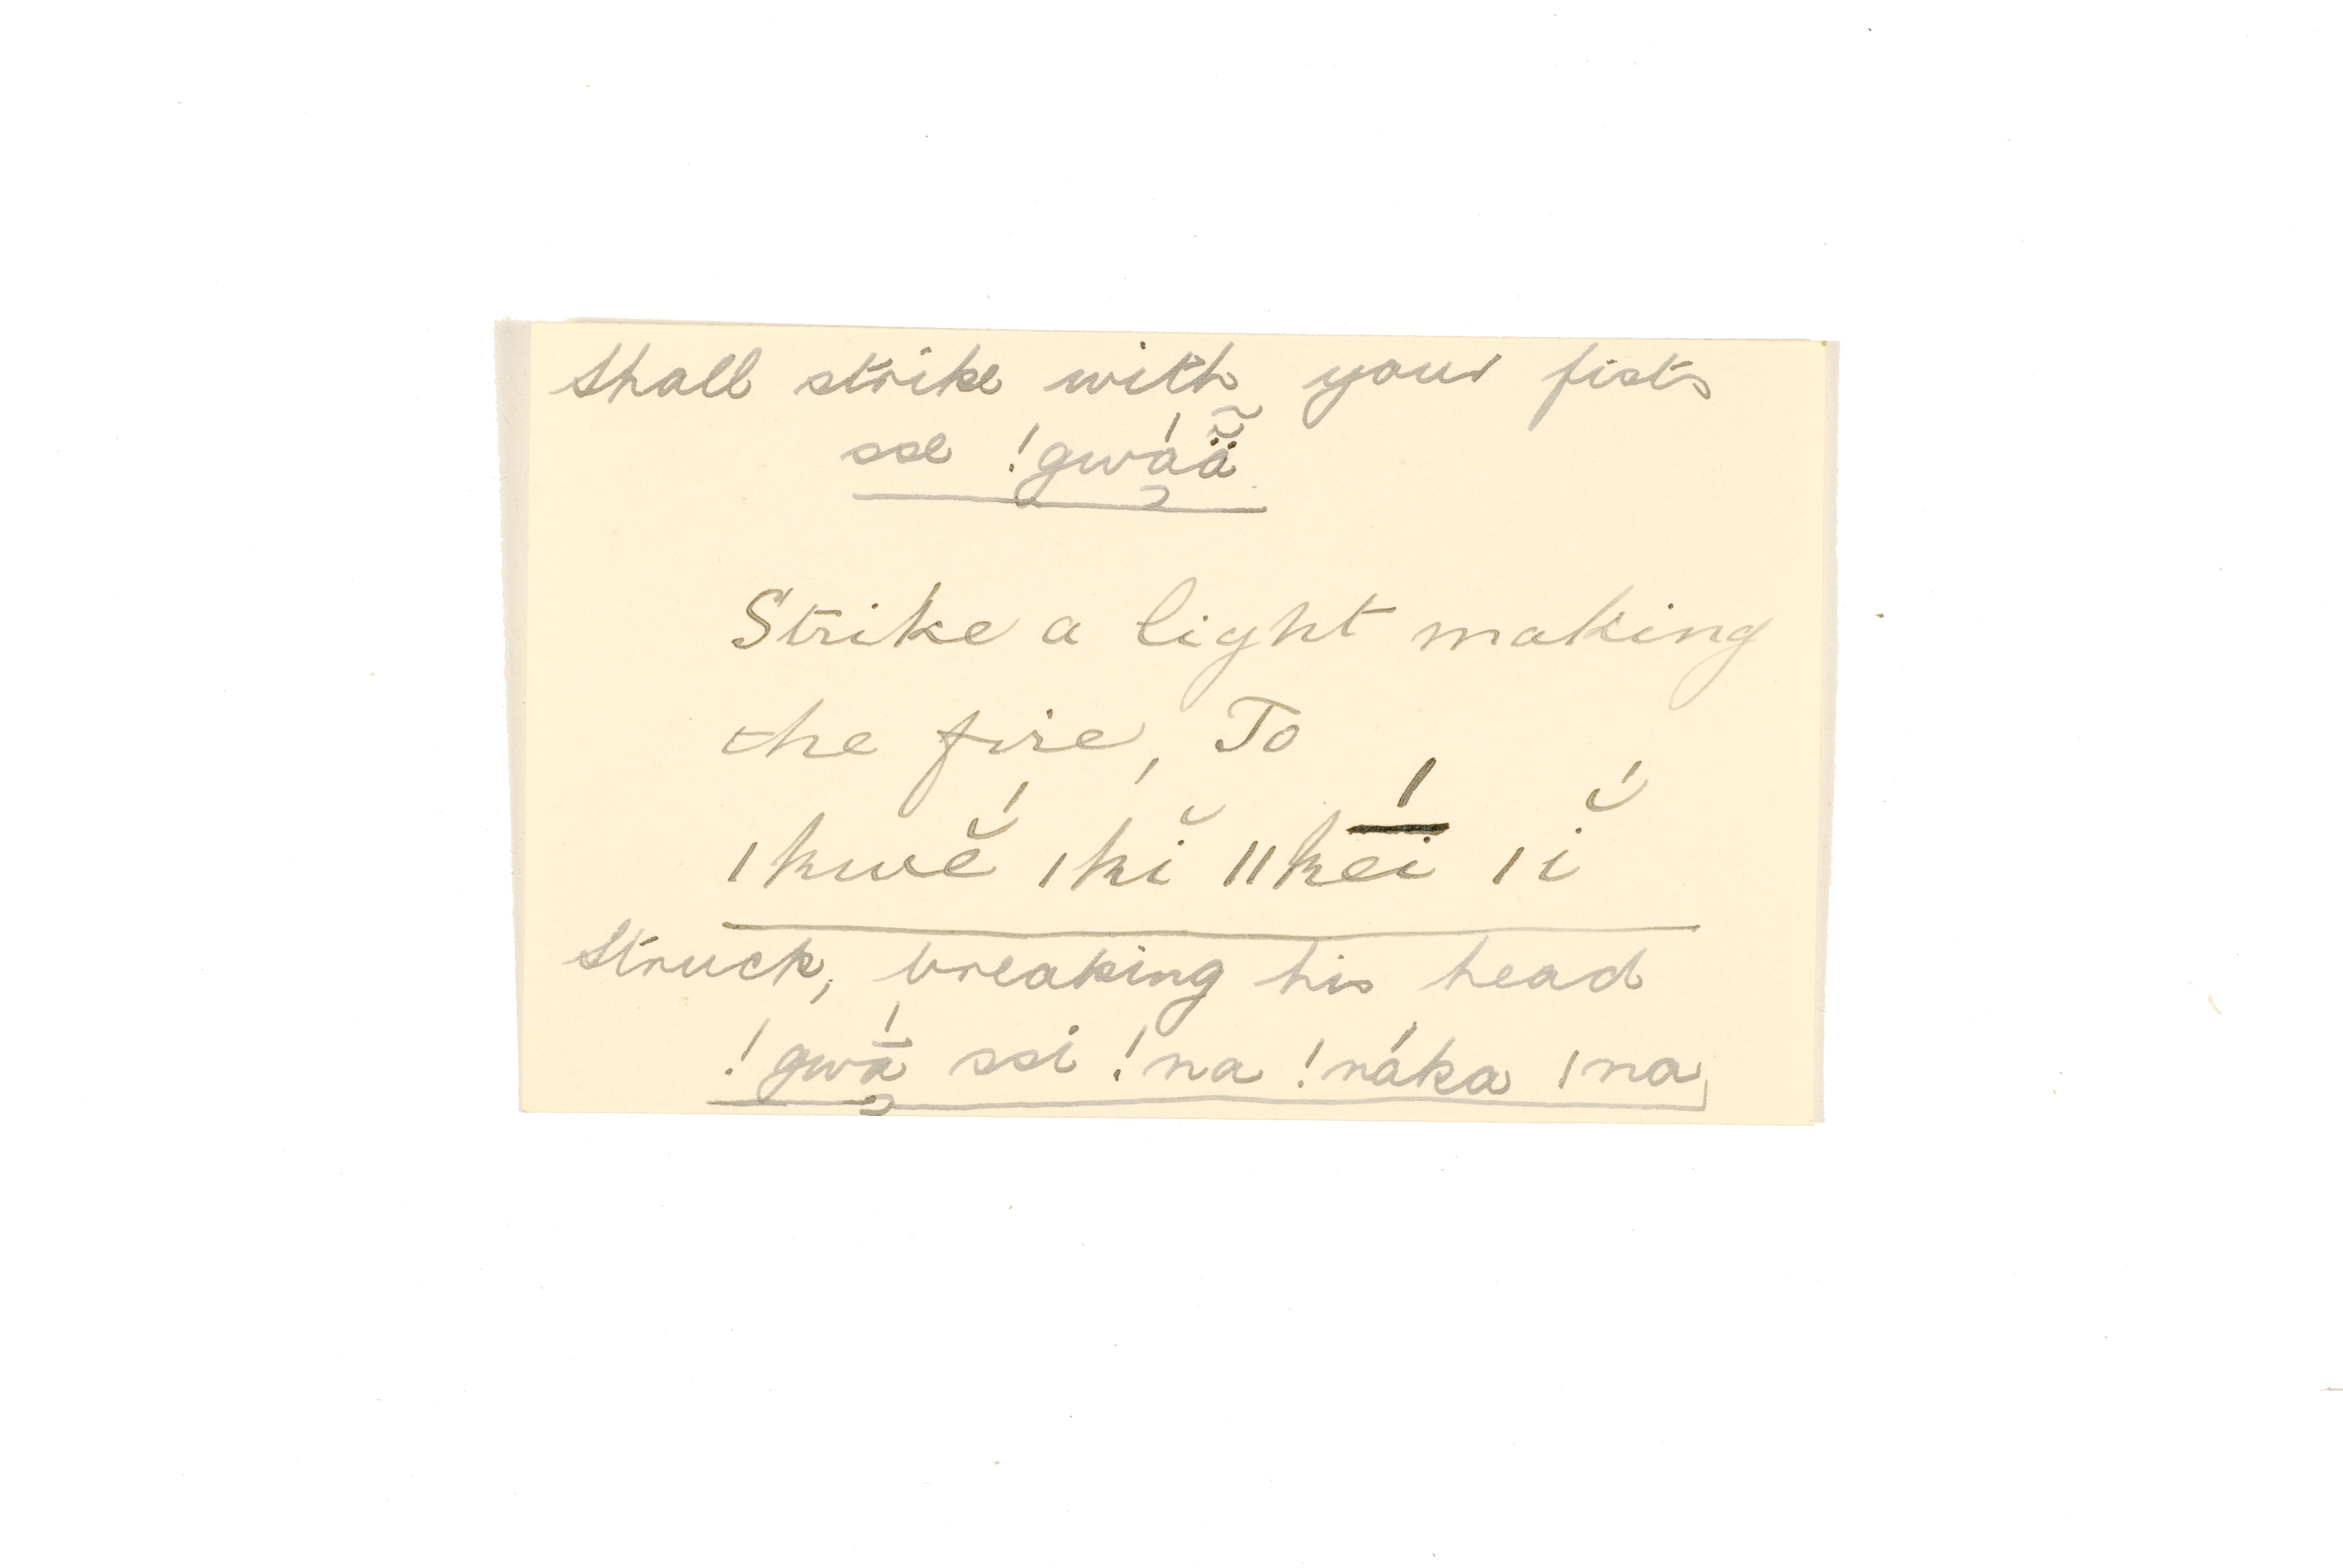 Shall strike with your fists
sse !gwáä̰̃
Strike a light making
the fire, To
ǀkwĕ́ ǀkĭ́ ǁkē̆́i ǀĭ́
Struck, breaking his head
!gwā́ ssi !na !náka ǀna